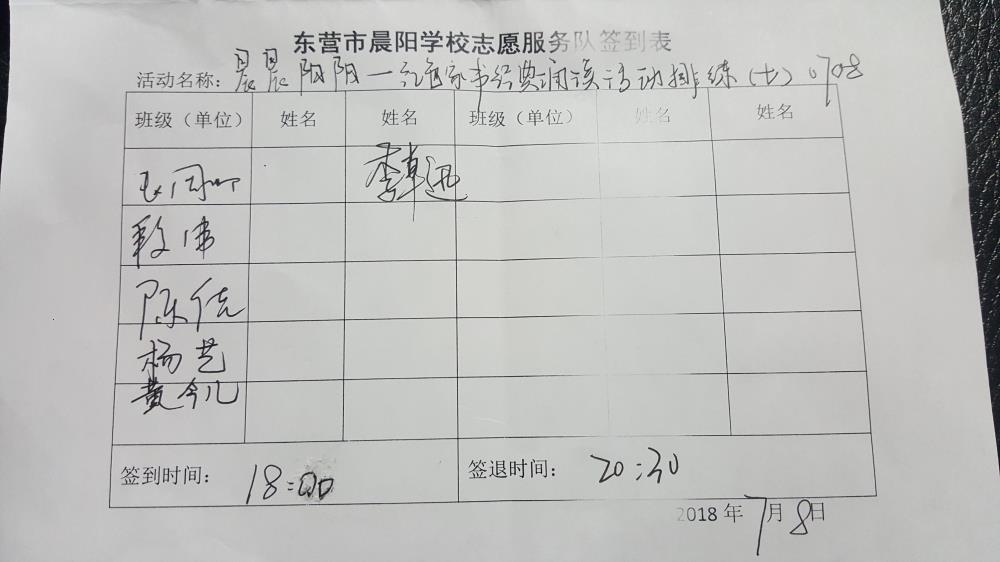 东营市晨阳学校志愿服务队签到表
活动名称：晨晨阳阳一红色家书经典诵读活动排练（七）0708
班级（单位） 姓名 姓名 班级（单位） 姓名 姓名
李卓迅
陈信
杨艺
黄今儿
签到时间： 18:00 签退时间： 20:30
2018年7月8日